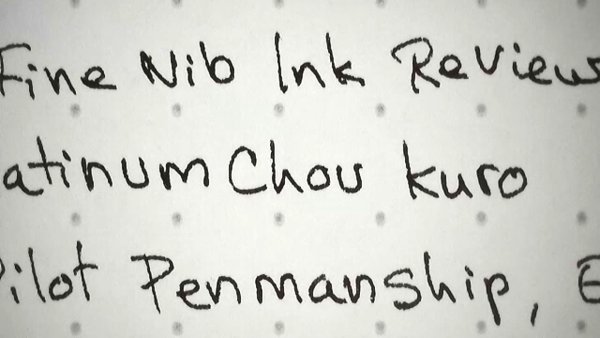 Fine Nib Ink Reviews
atinum Chou kuro
Pilot Penmanship, E